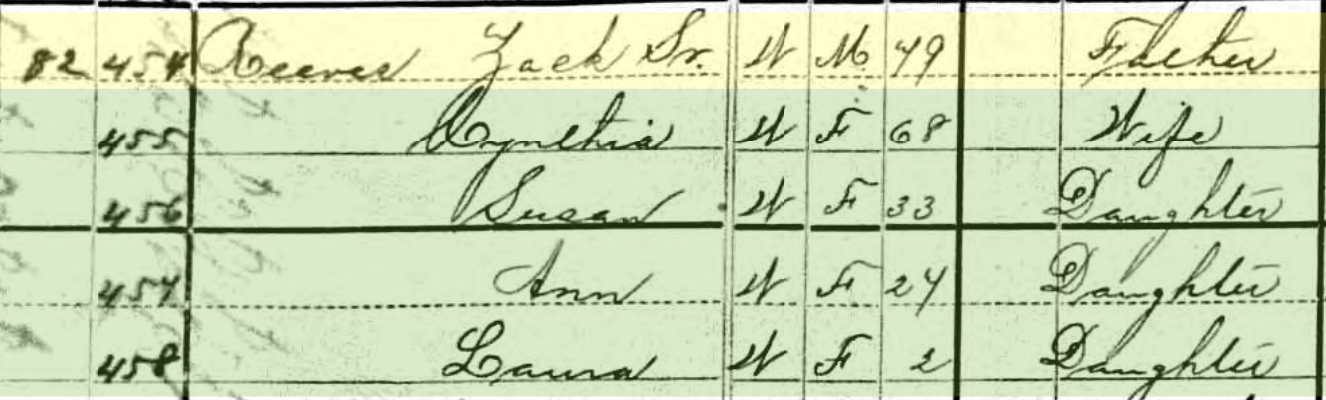 82 454 Reeves Zack Sr. W M 79 Father
455 Cynthia W F 68 Wife
456 Susan W F 33 Daughter
457 Ann W F 27 Daughter
458 Laura W F 2 Daughter